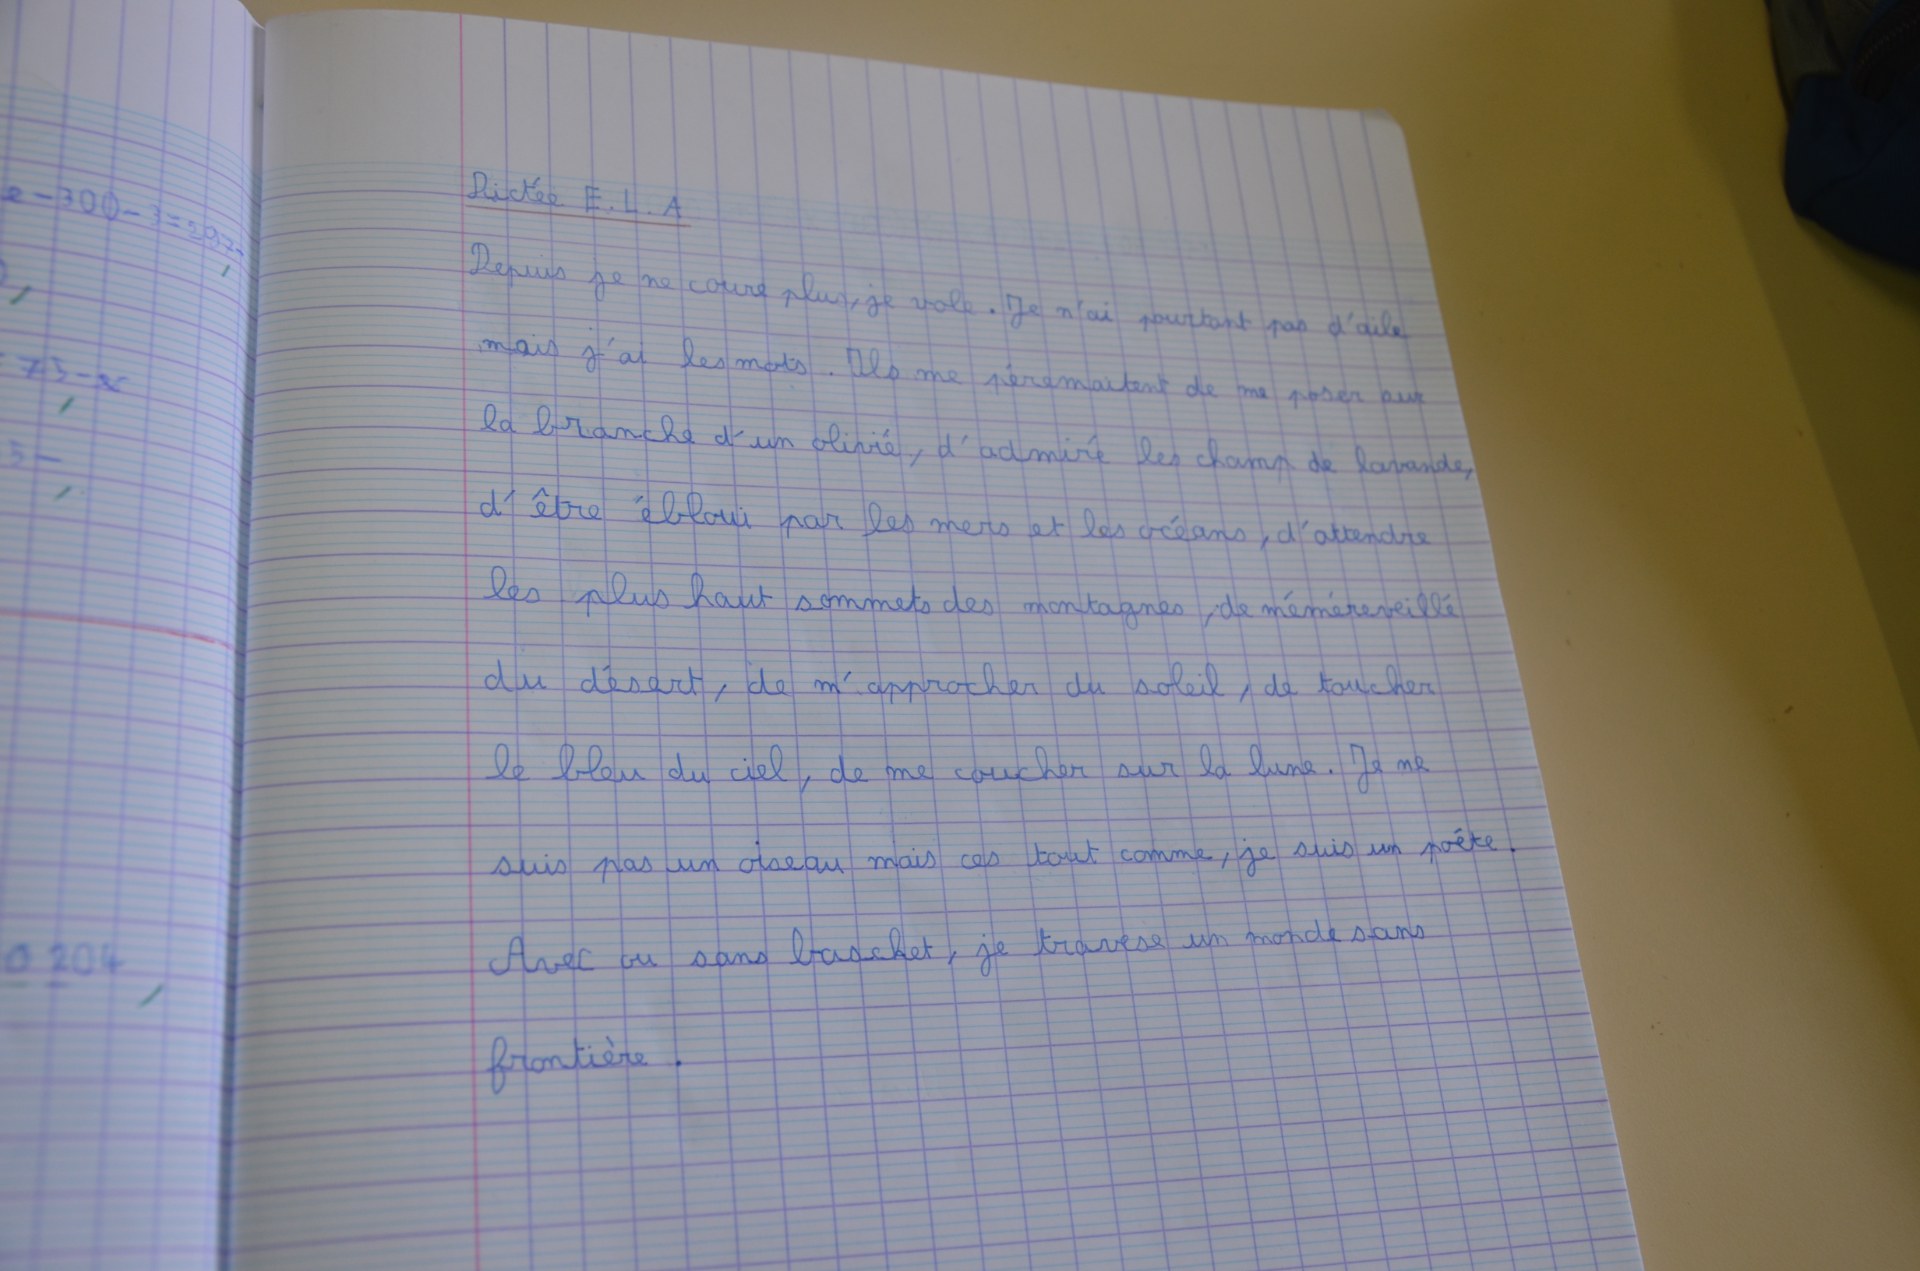 e-300-3=297
73-
5-
0 204
Dictée E.L.A
Depuis je ne coure plus, je vole. Je n'ai pourtant pas d'aile
mais j'ai les mots. Ils me pèremaitent de me poser sur
la branche d'un olivié, d'admiré les champ de lavande,
d'être ébloui par les mers et les océans, d'attendre
les plus haut sommets des montagnes, de mémèreveillé
du désert, de m'approcher du soleil, de toucher
le bleu du ciel, de me coucher sur la lune. Je ne
suis pas un oiseau mais ces tout comme, je suis un poète.
Avec ou sans baschet, je traverse un monde sans
frontière.